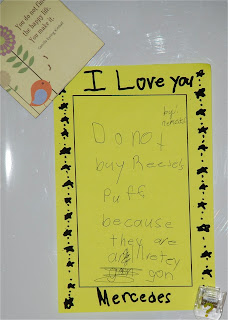 You do not find
the happy life.
You make it.
I Love you
by:
Do not
buy Reeses
Puff
because
they are
alretey
gon
Mercedes